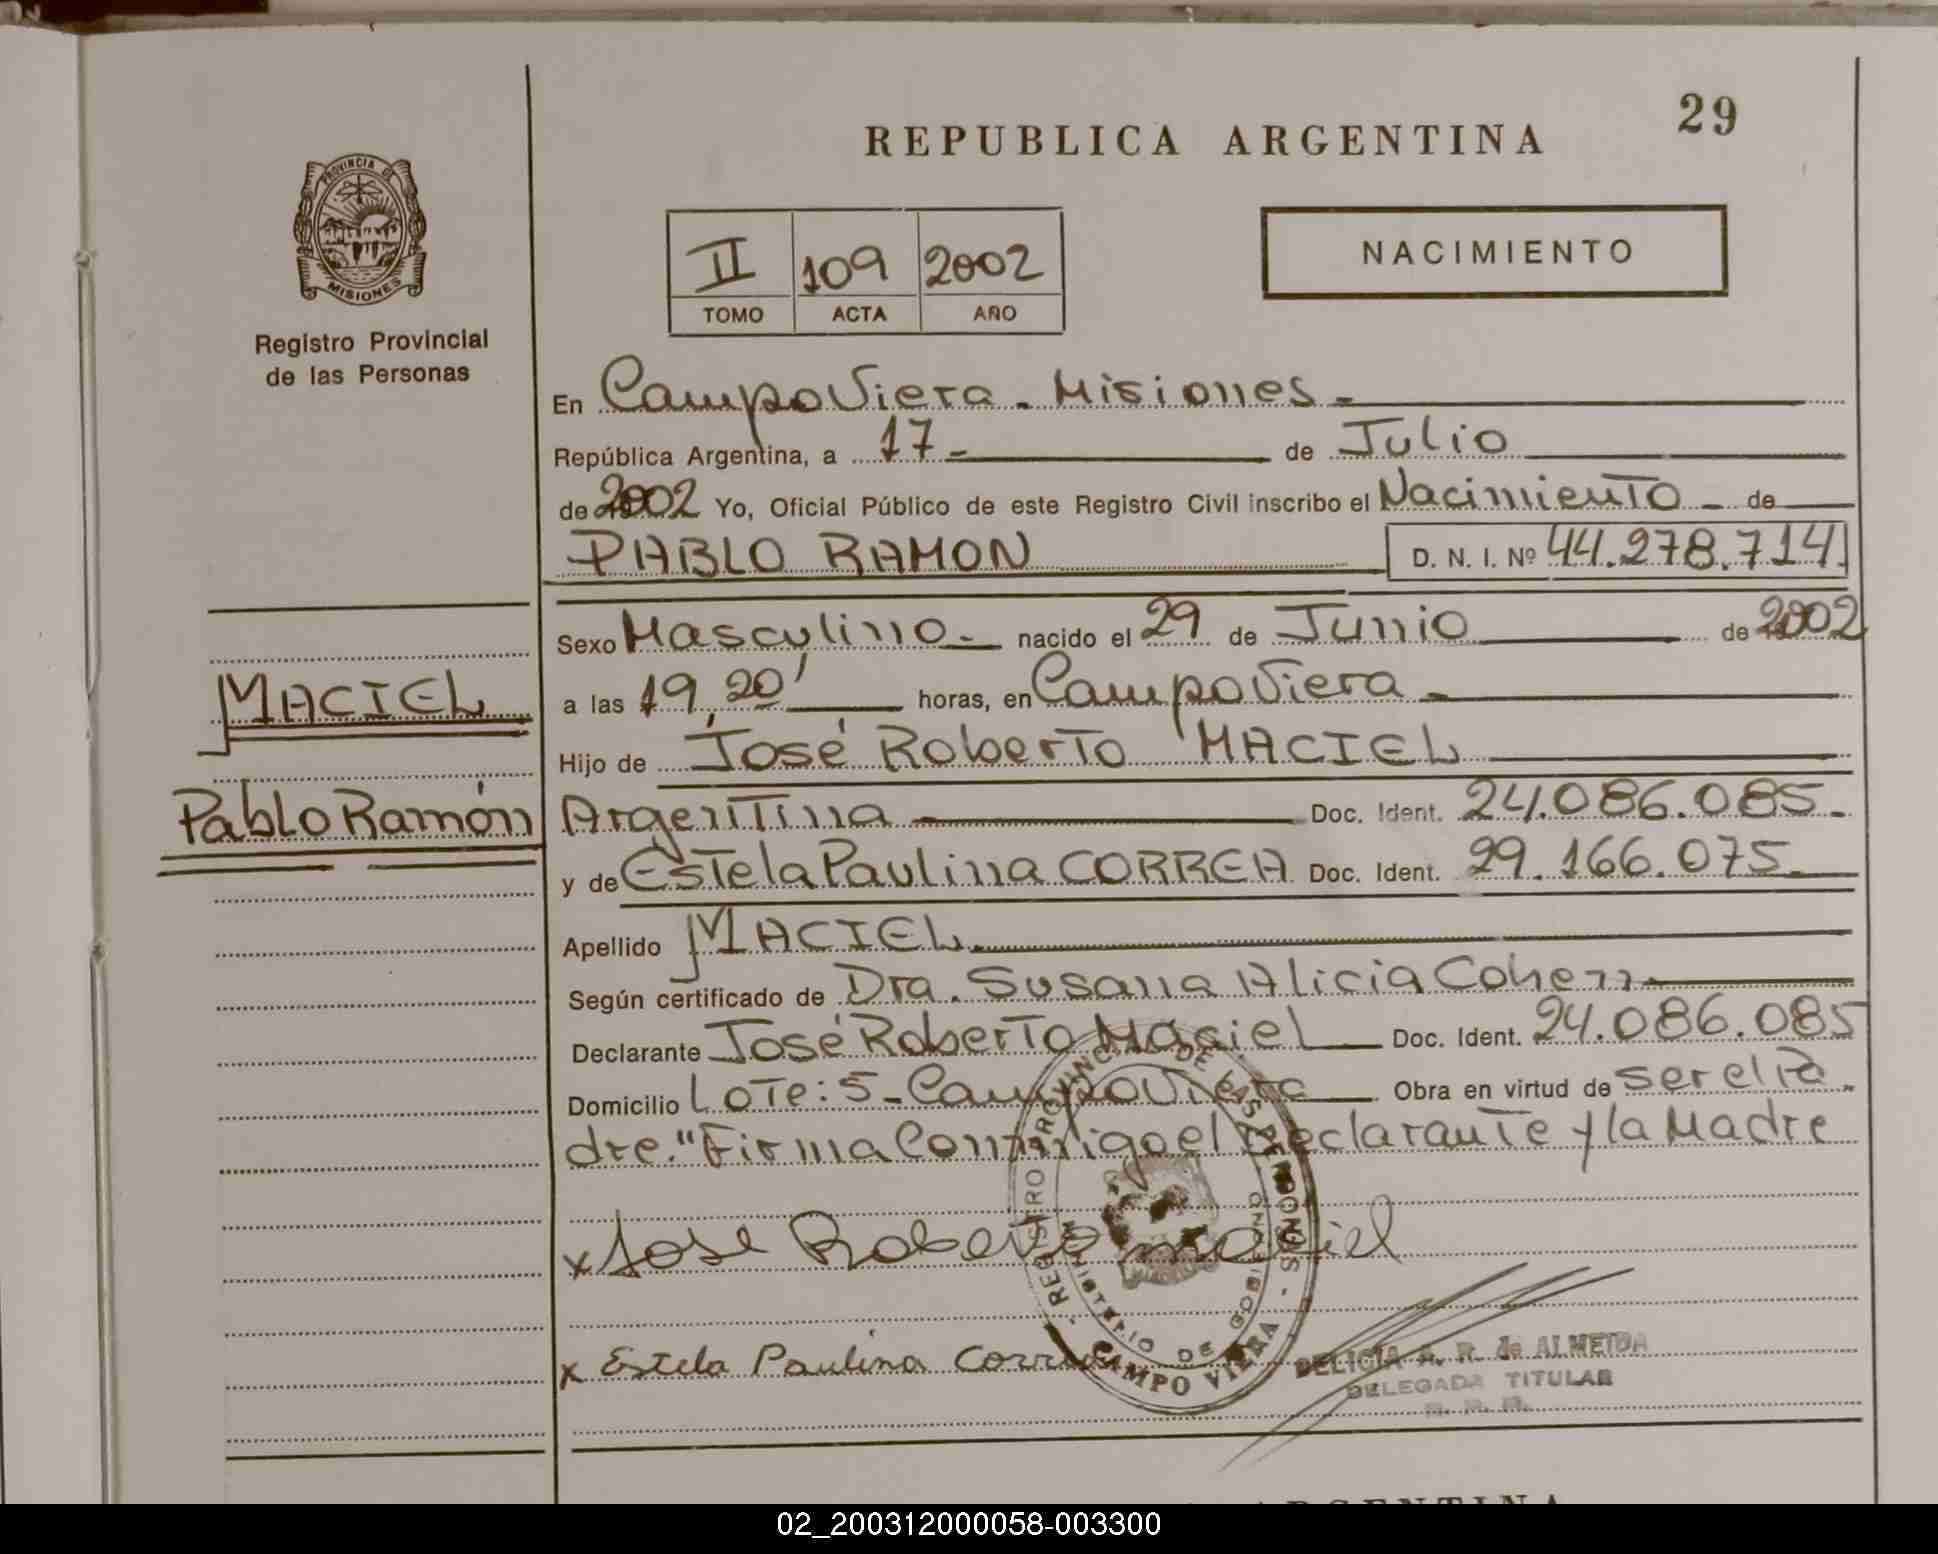 29
REPUBLICA ARGENTINA
PROVINCIA DE
MISIONES
Registro Provincial
de las Personas
II 109 2002
TOMO ACTA AÑO
NACIMIENTO
En Campo Viera - Misiones -
República Argentina, a 17 - de Julio
de 2002 Yo, Oficial Público de este Registro Civil inscribo el Nacimiento - de
PABLO RAMON D. N. I. Nº 44.278.714.
Sexo Masculino - nacido el 29 de Junio de 2002
MACIEL
a las 19,20' horas, en Campo Viera -
Hijo de José Roberto MACIEL
Pablo Ramón
Argentina Doc. Ident. 24.086.085.-
y de Estela Paulina CORREA Doc. Ident. 29.166.075.-
Apellido MACIEL
Según certificado de Dra. Susana Alicia Cohen
Declarante José Roberto Maciel Doc. Ident. 24.086.085
Domicilio Lote: 5 - Campo Viera Obra en virtud de ser el Pa
dre." Firma Conmigo el Declarante y la Madre
x Jose Roberto maciel
x Estela Paulina Correa
REGISTRO PROVINCIAL DE LAS PERSONAS
MINISTERIO DE GOBIERNO
CAMPO VIERA
DELICIA A. R. de ALMEIDA
DELEGADA TITULAR
R. P. P.
ARGENTINA
02_200312000058-003300